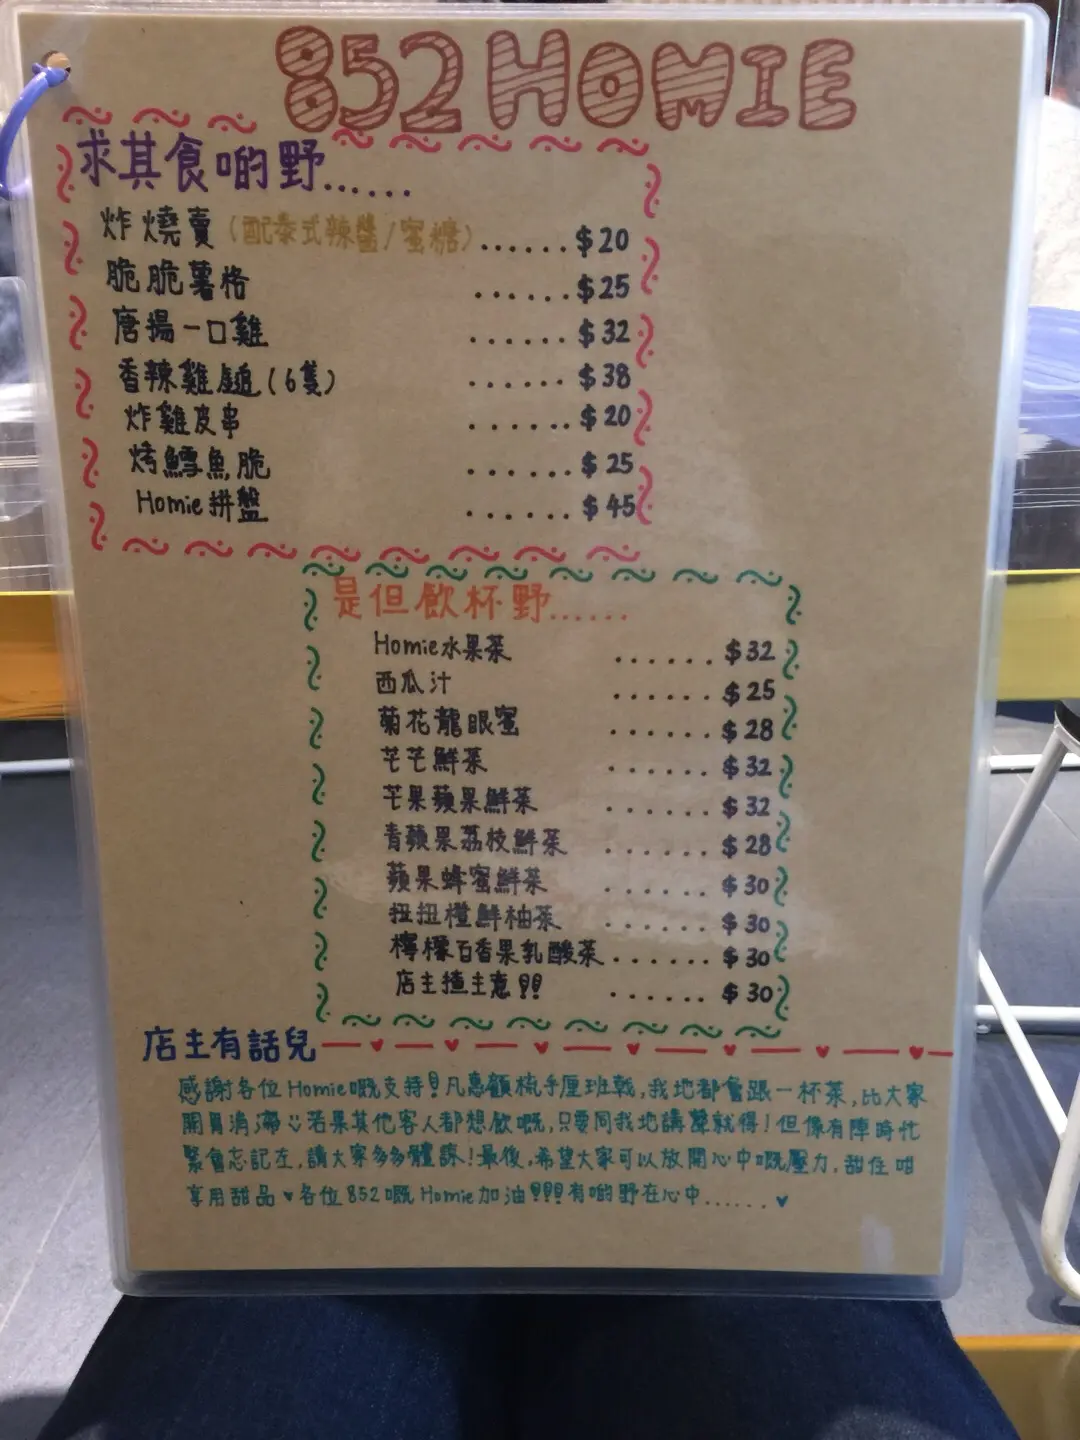 852 HOMIE
求其食啲野......
炸燒賣(配泰式辣醬/蜜糖)......$20
脆脆薯格......$25
唐揚一口雞......$32
香辣雞鎚(6隻)......$38
炸雞皮串......$20
烤鱈魚脆......$25
Homie拼盤......$45
是但飲杯野......
Homie水果茶......$32
西瓜汁......$25
菊花龍眼蜜......$28
芒芒鮮茶......$32
芒果蘋果鮮茶......$32
青蘋果荔枝鮮茶......$28
蘋果蜂蜜鮮茶......$30
扭扭橙鮮柚茶......$30
檸檬百香果乳酸茶......$30
店主揸主意!!......$30
店主有話兒
感謝各位Homie嘅支持!凡惠顧梳乎厘班戟,我地都會跟一杯茶,比大家
開胃消滯 若果其他客人都想飲嘅,只要同我地講聲就得!但係有陣時忙
緊會忘記左,請大家多多體諒!最後,希望大家可以放開心中嘅壓力,甜住咁
享用甜品♥各位852嘅Homie加油!!!有啲野在心中......♥